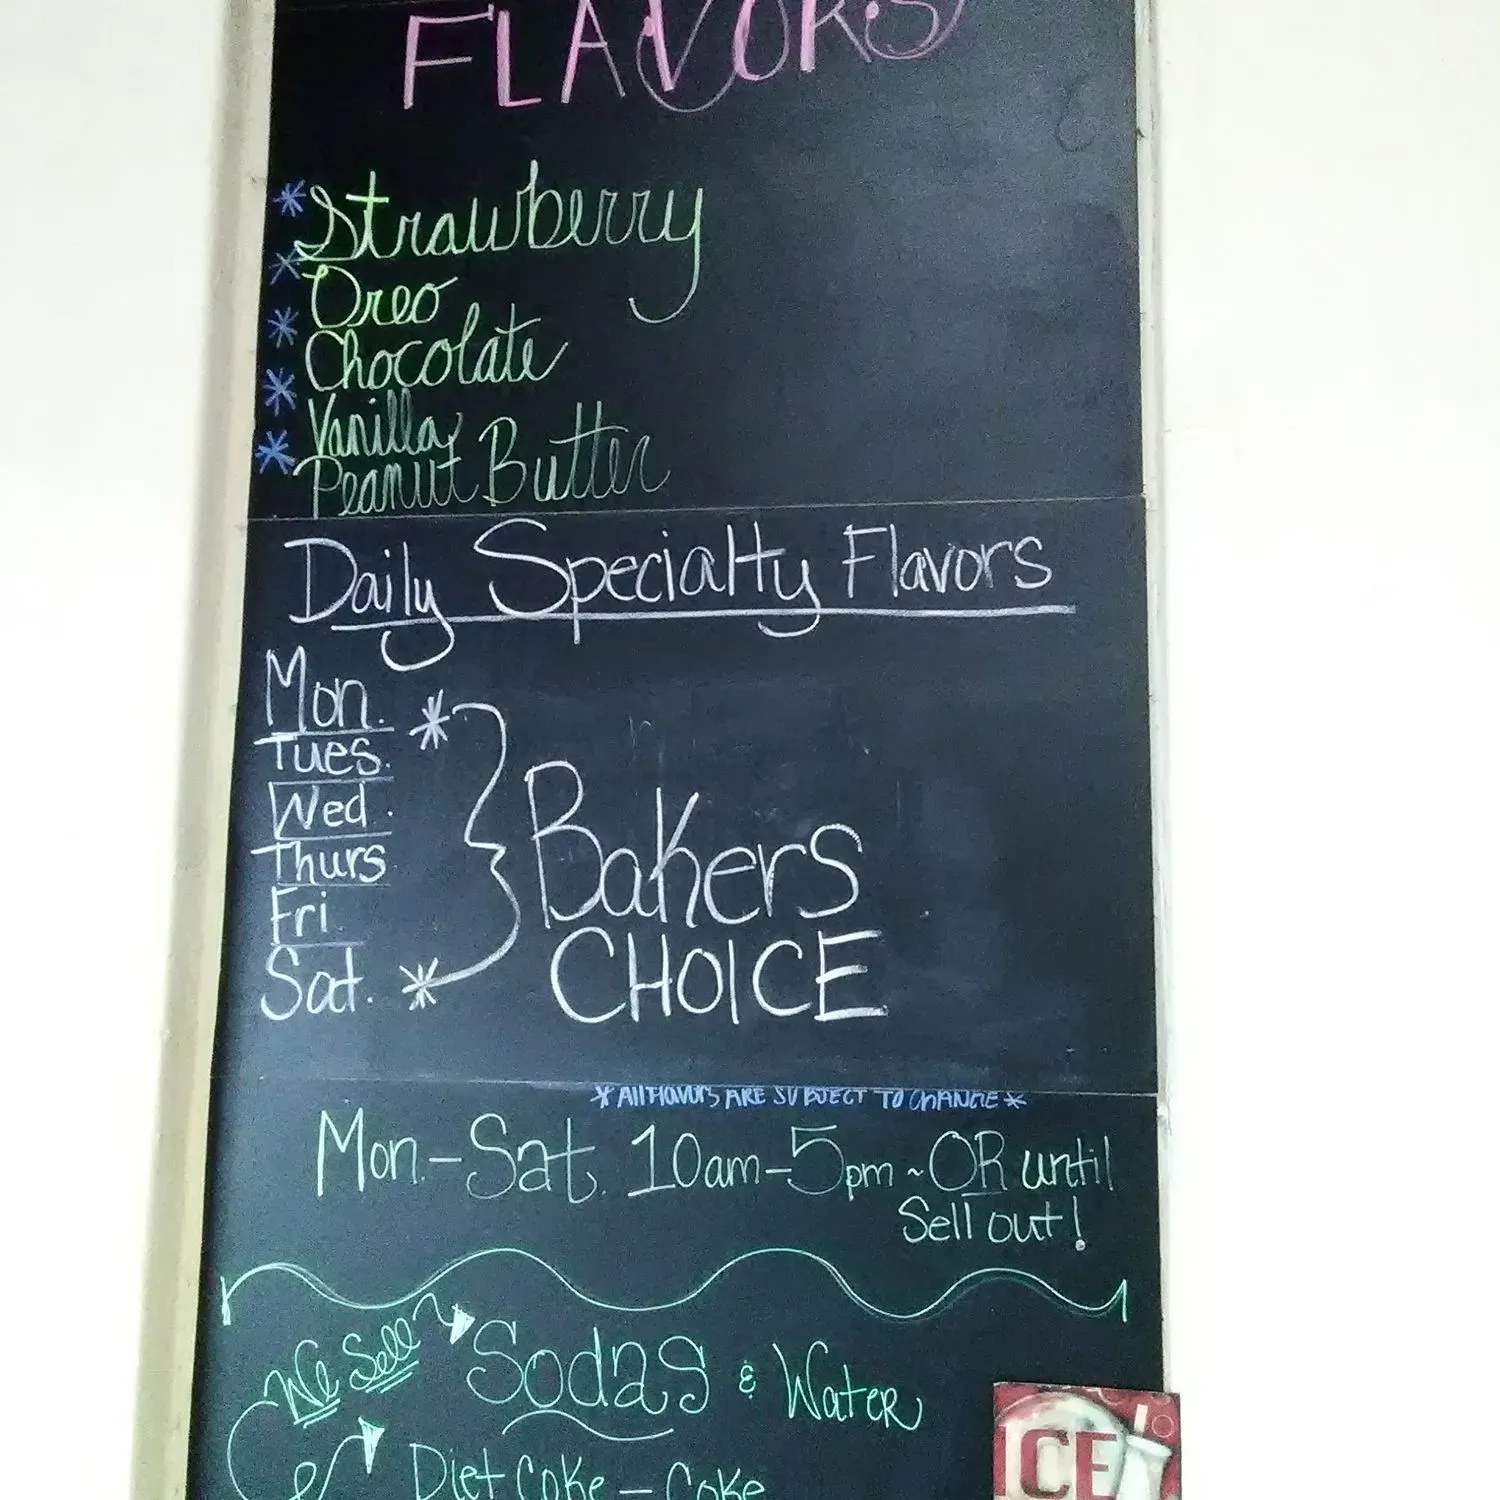 FLAVORS
*Strawberry
*Oreo
*Chocolate
*Vanilla
*Peanut Butter
Daily Specialty Flavors
Mon.
Tues.
Wed.
Thurs
Fri.
Sat.
* } *
Bakers
CHOICE
* All Flavors ARE SUBJECT TO CHANGE *
Mon.-Sat. 10am-5pm ~ OR until
Sell out!
We Sell Sodas & Water
Diet Coke - Coke
ICE